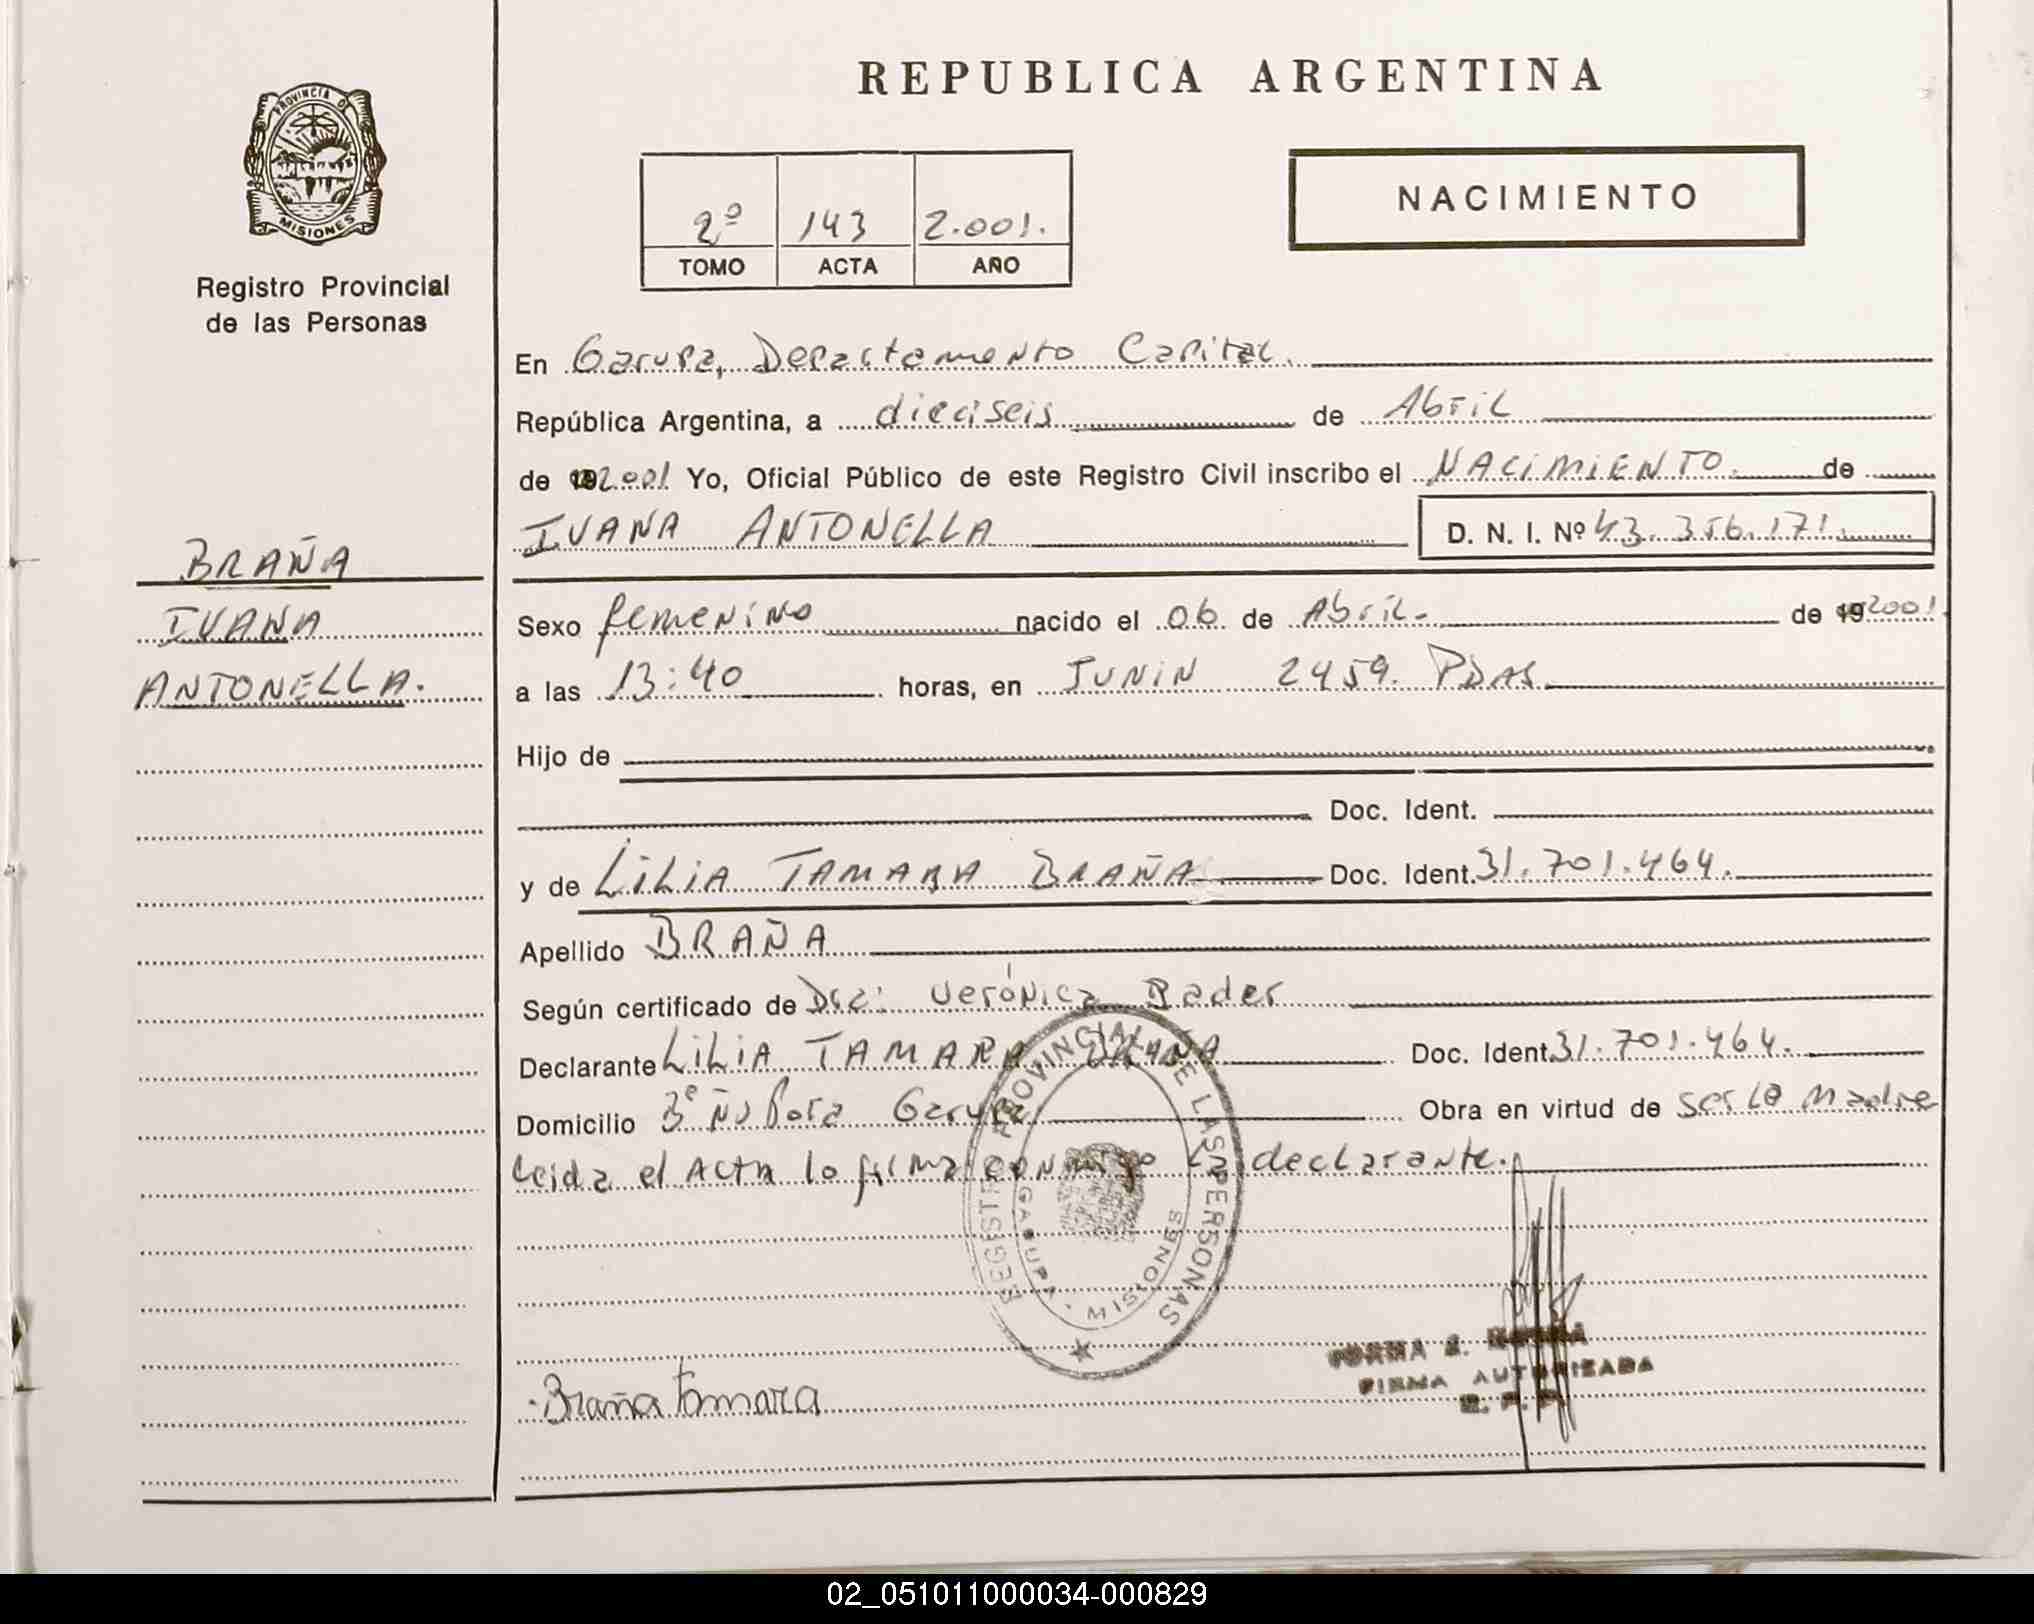 REPUBLICA ARGENTINA
PROVINCIA D
MISIONES
Registro Provincial
de las Personas
2º 143 2.001.
TOMO ACTA AÑO
NACIMIENTO
En Garupa, Departamento Capital.
República Argentina, a dieciseis de Abril
de 2.001 Yo, Oficial Público de este Registro Civil inscribo el NACIMIENTO. de
IVANA ANTONELLA D. N. I. Nº 43.356.171.
BRAÑA
IVANA
ANTONELLA.
Sexo femenino nacido el 06 de Abril. de 19 2001.
a las 13:40 horas, en JUNIN 2459. PDAS.
Hijo de
Doc. Ident.
y de LILIA TAMARA BRAÑA Doc. Ident. 31.701.464.
Apellido BRAÑA
Según certificado de Dra: Verónica Bader
Declarante LILIA TAMARA BRAÑA Doc. Ident. 31.701.464.
Domicilio Bº Ñu Pora Garupa Obra en virtud de ser la madre
Leida el ACTA lo firma conmigo la declarante.
REGISTRO PROVINCIAL DE LAS PERSONAS
GARUPA - MISIONES
Braña Tamara
FIRMA AUTORIZADA
02_051011000034-000829